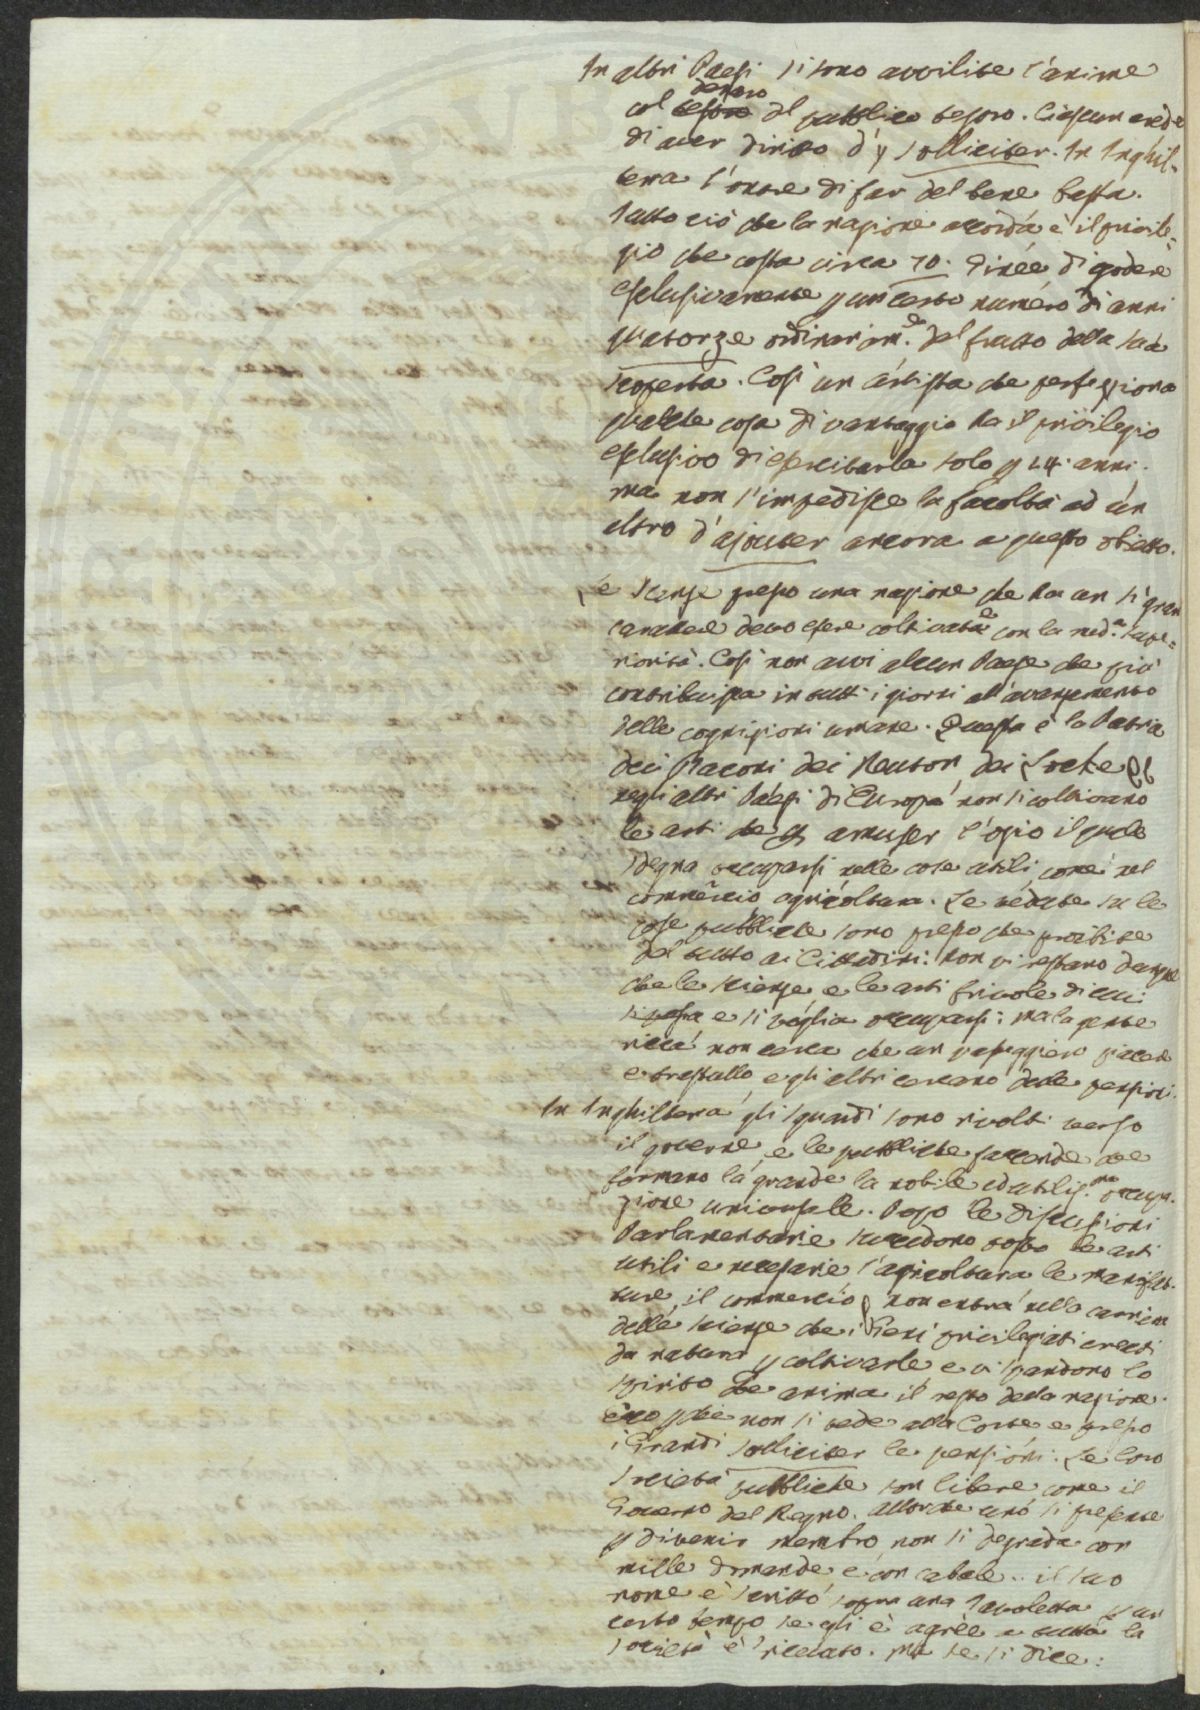 In altri Paesi si sono avvilite l'anime
col denaro del pubblico tesoro. Ciascun crede
di aver diritto di solliciter. In Inghil=
terra l'onore di far del bene basta.
Tutto ciò che la nazione accorda è il privile=
gio che costa circa 70. Ginee di godere
esclusivamente p un certo numero di anni
quatorze ordinariam.e del frutto della sua
scoperta. Così un artista che perfeziona
qualche cosa di vantaggio ha il privilegio
esclusivo di esercitarla solo p 14. anni.
ma non s'impedisce la facoltà ad un
altro d'ajouter ancora a questo obietto.
Le scienze presso una nazione che ha un sì gran
carattere devo essere coltivate con la med.a supe=
riorità. Così non avvi alcun Paese che più
contribuisca in tutti i giorni all'avanzamento
delle cognizioni umane. Questa è la Patria
dei Baconi dei Neuton dei Locke
negli altri Paesi di Europa non si coltivano
le arti che p amuser l'ozio il quale
sdegna occuparsi nelle cose utili come nel
commercio agricoltura. Le vedute su le
cose pubbliche sono presso che proibite
del tutto ai Cittadini: non vi restano dunque
che le scienze e le arti frivole di cui
si possa e si voglia occuparsi: ma la gente
ricca non cerca che un passeggiero piacere
e trastullo e gli altri cercano delle pensioni.
In Inghilterra gli sguardi sono rivolti verso
il governo, e le pubbliche faccende che
formano la grande la nobile ed utiliss.ma occupa=
zione universale. Dopo le discussioni
Parlamentarie succedono tosto le arti
utili e necessarie l'agricoltura le manifat=
ture, il commercio, non entra nella carriera
delle scienze che i Genj privilegiati creati
da natura p coltivarle e vi spandono lo
spirito che anima il resto della nazione.
Ecco p che non si vede alla Corte e presso
i Grandi solliciter le pensioni: Le loro
società pubbliche son libere come il
Governo del Regno. Allorche uno si presenta
p divenir membro non si degrada con
mille domande e con cabale.. il suo
nome è scritto sopra una Tavoletta p un
certo tempo se egli è agrèe a tutta la
società è ricevuto. Ma se si dice: